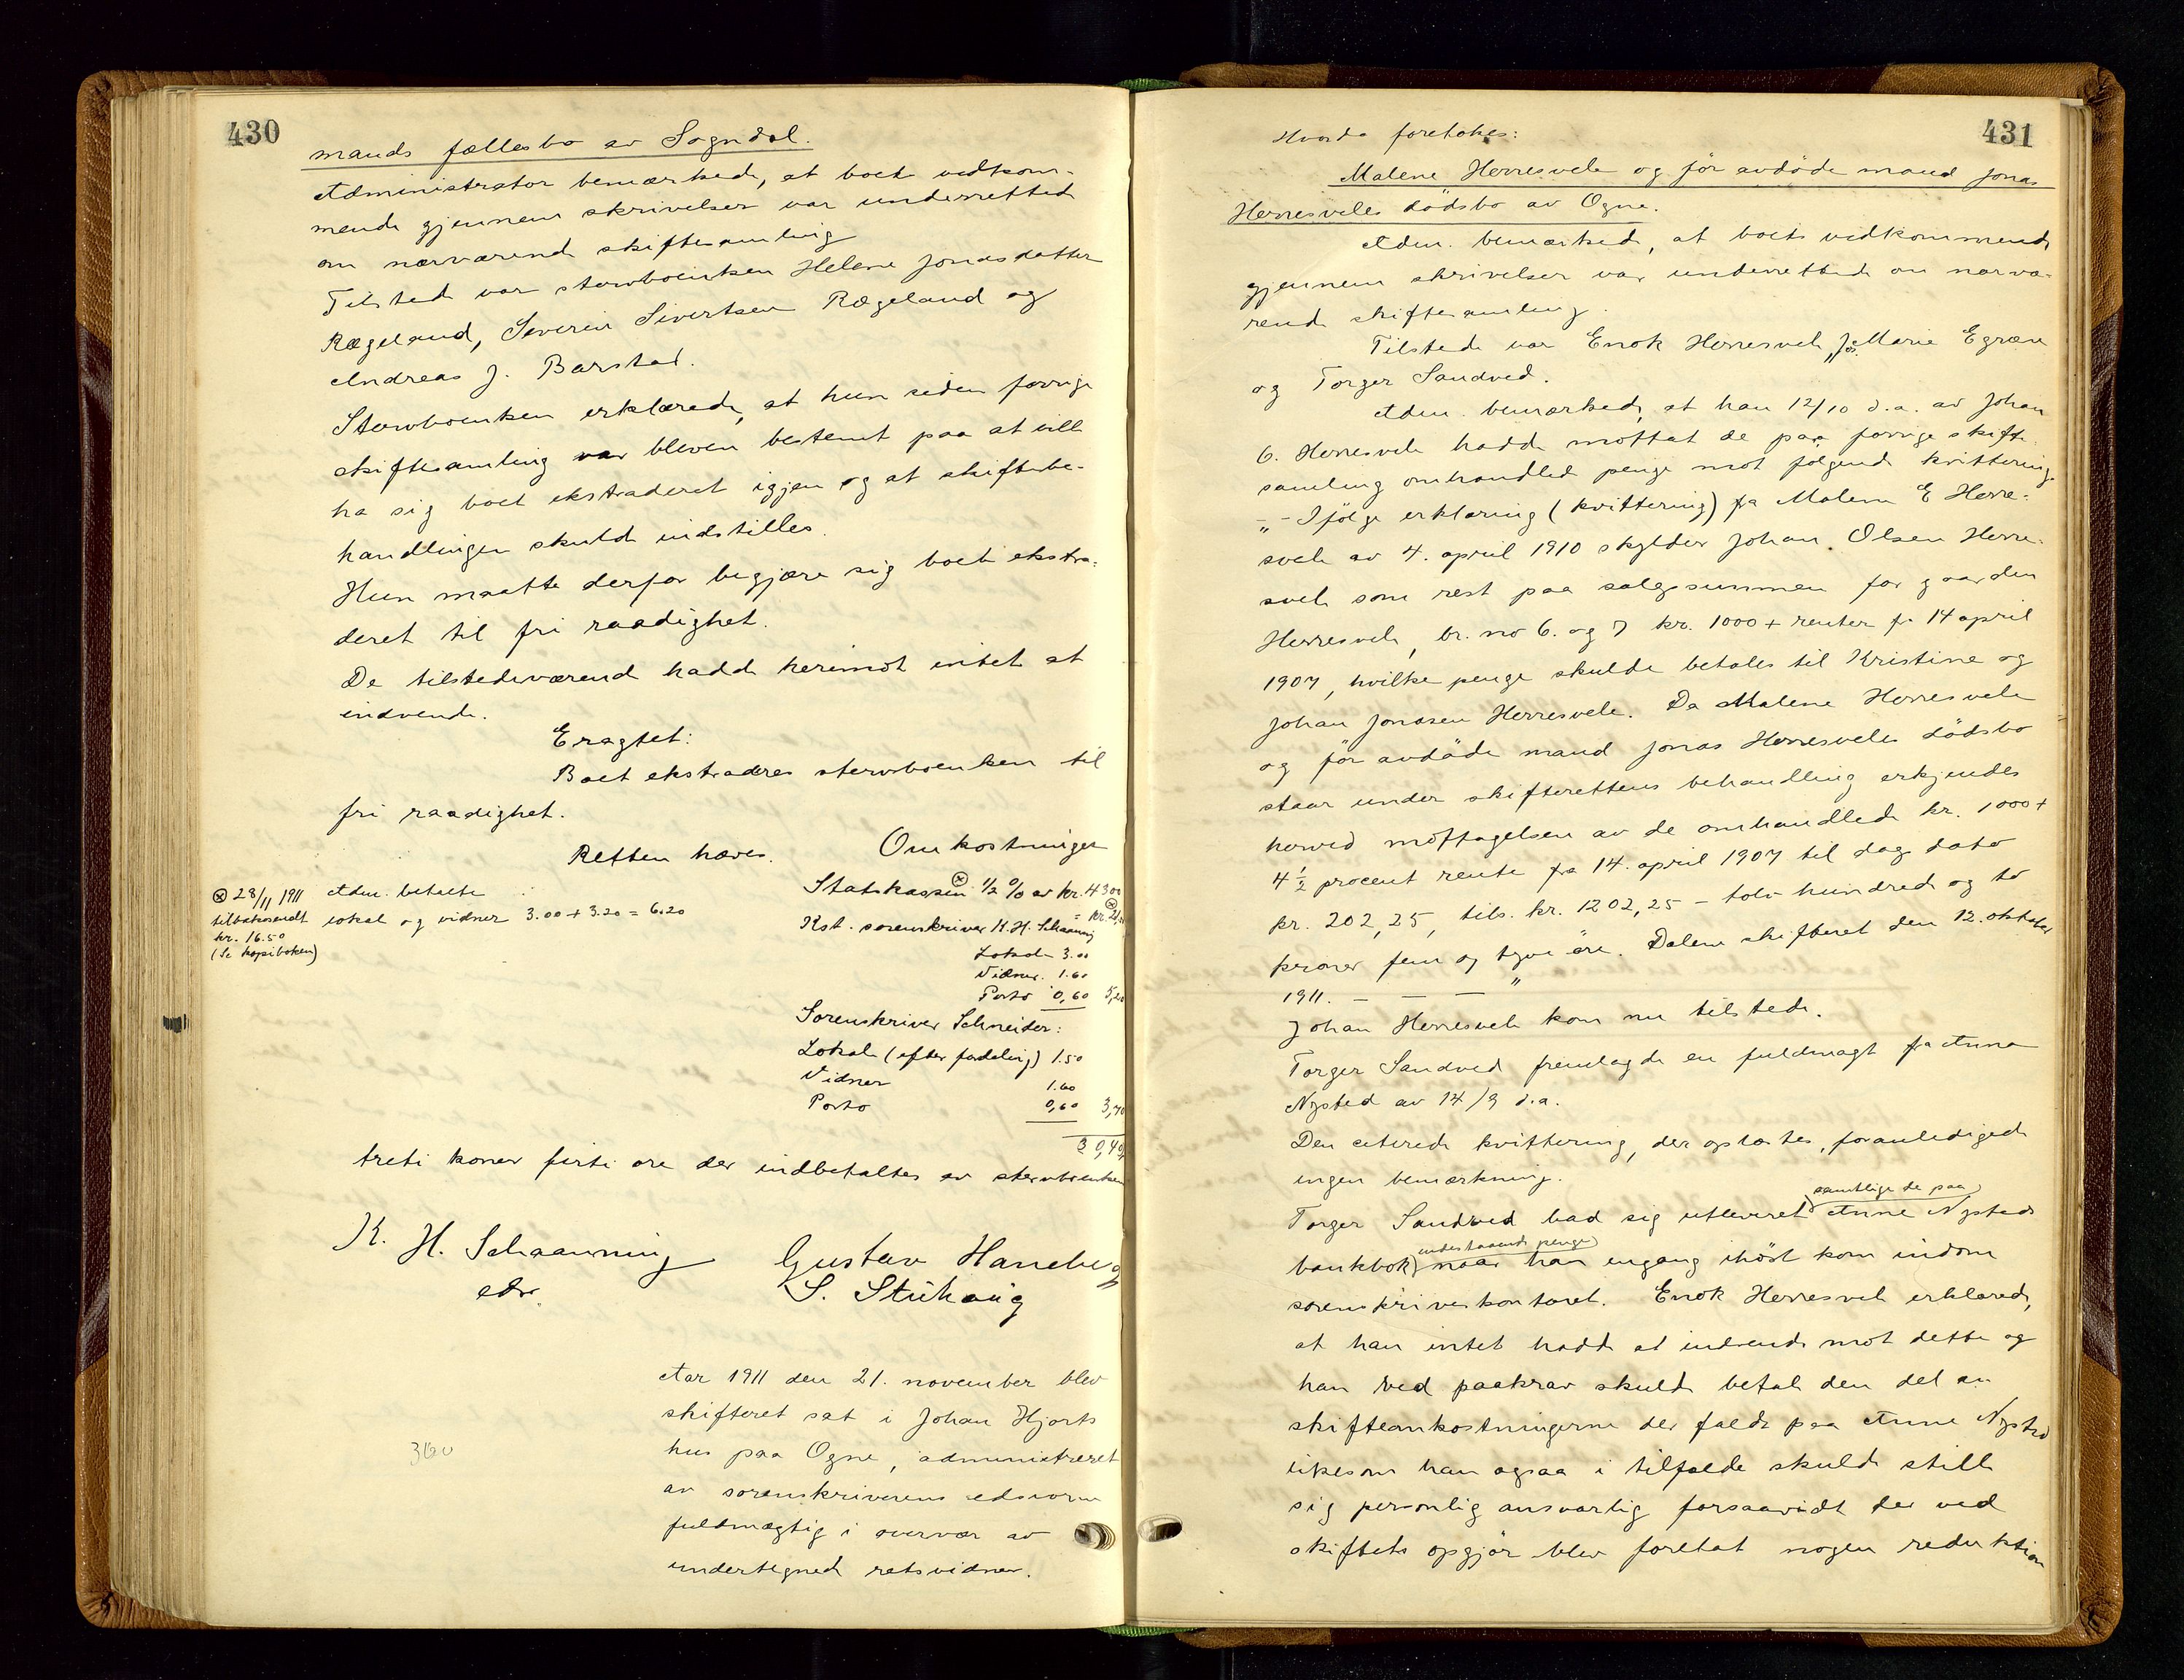 430
mands fællesbo av Sogndal.
Administrator bemærkede, at boets vedkom-
mende gjennem skrivelser var underrettede
om nærværende skiftesamling
Tilstede var stervboenken Helene Jonasdatter
Rægeland, Severin Sivertsen Rægeland og
Andreas J. Barstad.
Stervboenken erklærede, at hun siden forrige
skiftesamling var bleven bestemt paa at ville
ha sig boet ekstraderet igjen og at skiftebe-
handlingen skulde indstilles.
Hun maatte derfor begjære sig boet ekstra-
deret til fri raadighet.
De tilstedeværende hadde herimot intet at
indvende.
Eragtet:
Boet ekstraderes stervboenken til
fri raadighet.
Retten hæves.
Omkostninger
Statskassen ⊗ ½ % av kr. 4300
= kr. 21,50
⊗ 28/11 1911 Adm. betalte
tilbakesendt lokal og vidner 3.00 + 3.20 = 6.20
kr. 16.50
(Se kopiboken)
Kst. sorenskriver K. H. Schaanning
Lokale 3.00
Vidner 1.60
Porto 0,60 5,20
Sorenskriver Schneider:
Lokale (efter fordeling) 1.50
Vidner 1.60
Porto 0,60 3,70
30,40
treti kroner firti øre der indbetaltes av stervboenken
K. H. Schaanning Gustav Haneberg
edv. S. Stuhaug
Aar 1911 den 21. november blev
skifteret sat i Johan Hjorts
hus paa Ogne, administreret
360
av sorenskriverens edsvorne
fuldmægtig i overvær av
undertegnede retsvidner.
431
Hvorda foretokes:
Malene Herresvele og før avdøde mand Jonas
Herresveles dødsbo av Ogne.
Adm. bemærkede, at boets vedkommende
gjennem skrivelser var underrettede om nærvæ-
rende skiftesamling.
Tilstede var Enok Herresvele, Marie Egræe
og Torger Sandved.
Adm. bemærkede, at han 12/10 d.a. av Johan
O. Herresvele hadde mottat de paa forrige skifte-
samling omhandlede penge mot følgende kvittering
-„- Ifølge erklæring (kvittering) fra Malene E Herre-
svele av 4. april 1910 skylder Johan Olsen Herre-
svele som rest paa salgssummen for gaarden
Herresvele, br. no 6. og 7 kr. 1000 + renter fra 14 april
1907, hvilke penge skulde betales til Kristine og
Johan Jonasen Herresvele. Da Malene Herresvele
og før avdøde mand Jonas Herresveles dødsbo
staar under skifterettens behandling erkjendes
herved mottagelsen av de omhandlede kr. 1000 +
4½ procent rente fra 14. april 1907 til dags dato
kr. 202,25, tils. kr. 1202,25 - tolv hundrede og to
kroner fem og tyve øre. Dalene skifteret den 12. oktober
1911. - - - „
Johan Herresvele kom nu tilstede.
Torger Sandved fremlagde en fuldmagt fra Anna
Nysted av 14/9 d.a.
Den citerede kvittering, der oplæstes, foranledigede
ingen bemærkning.
Torger Sandved bad sig utleveret samtlige de paa Anne Nysteds
bankbok indestaaende penge naar han engang ihøst kom indom
sorenskriverkontoret. Enok Herresvele erklærede,
at han intet hadde at indvende mot dette og
han ved paakrav skulde betale den del av
skifteomkostningerne der faldt paa Anne Nysted
likesom han ogsaa i tilfælde skulde stille
sig personlig ansvarlig forsaavidt der ved
skiftets opgjør blev foretat nogen reduktion